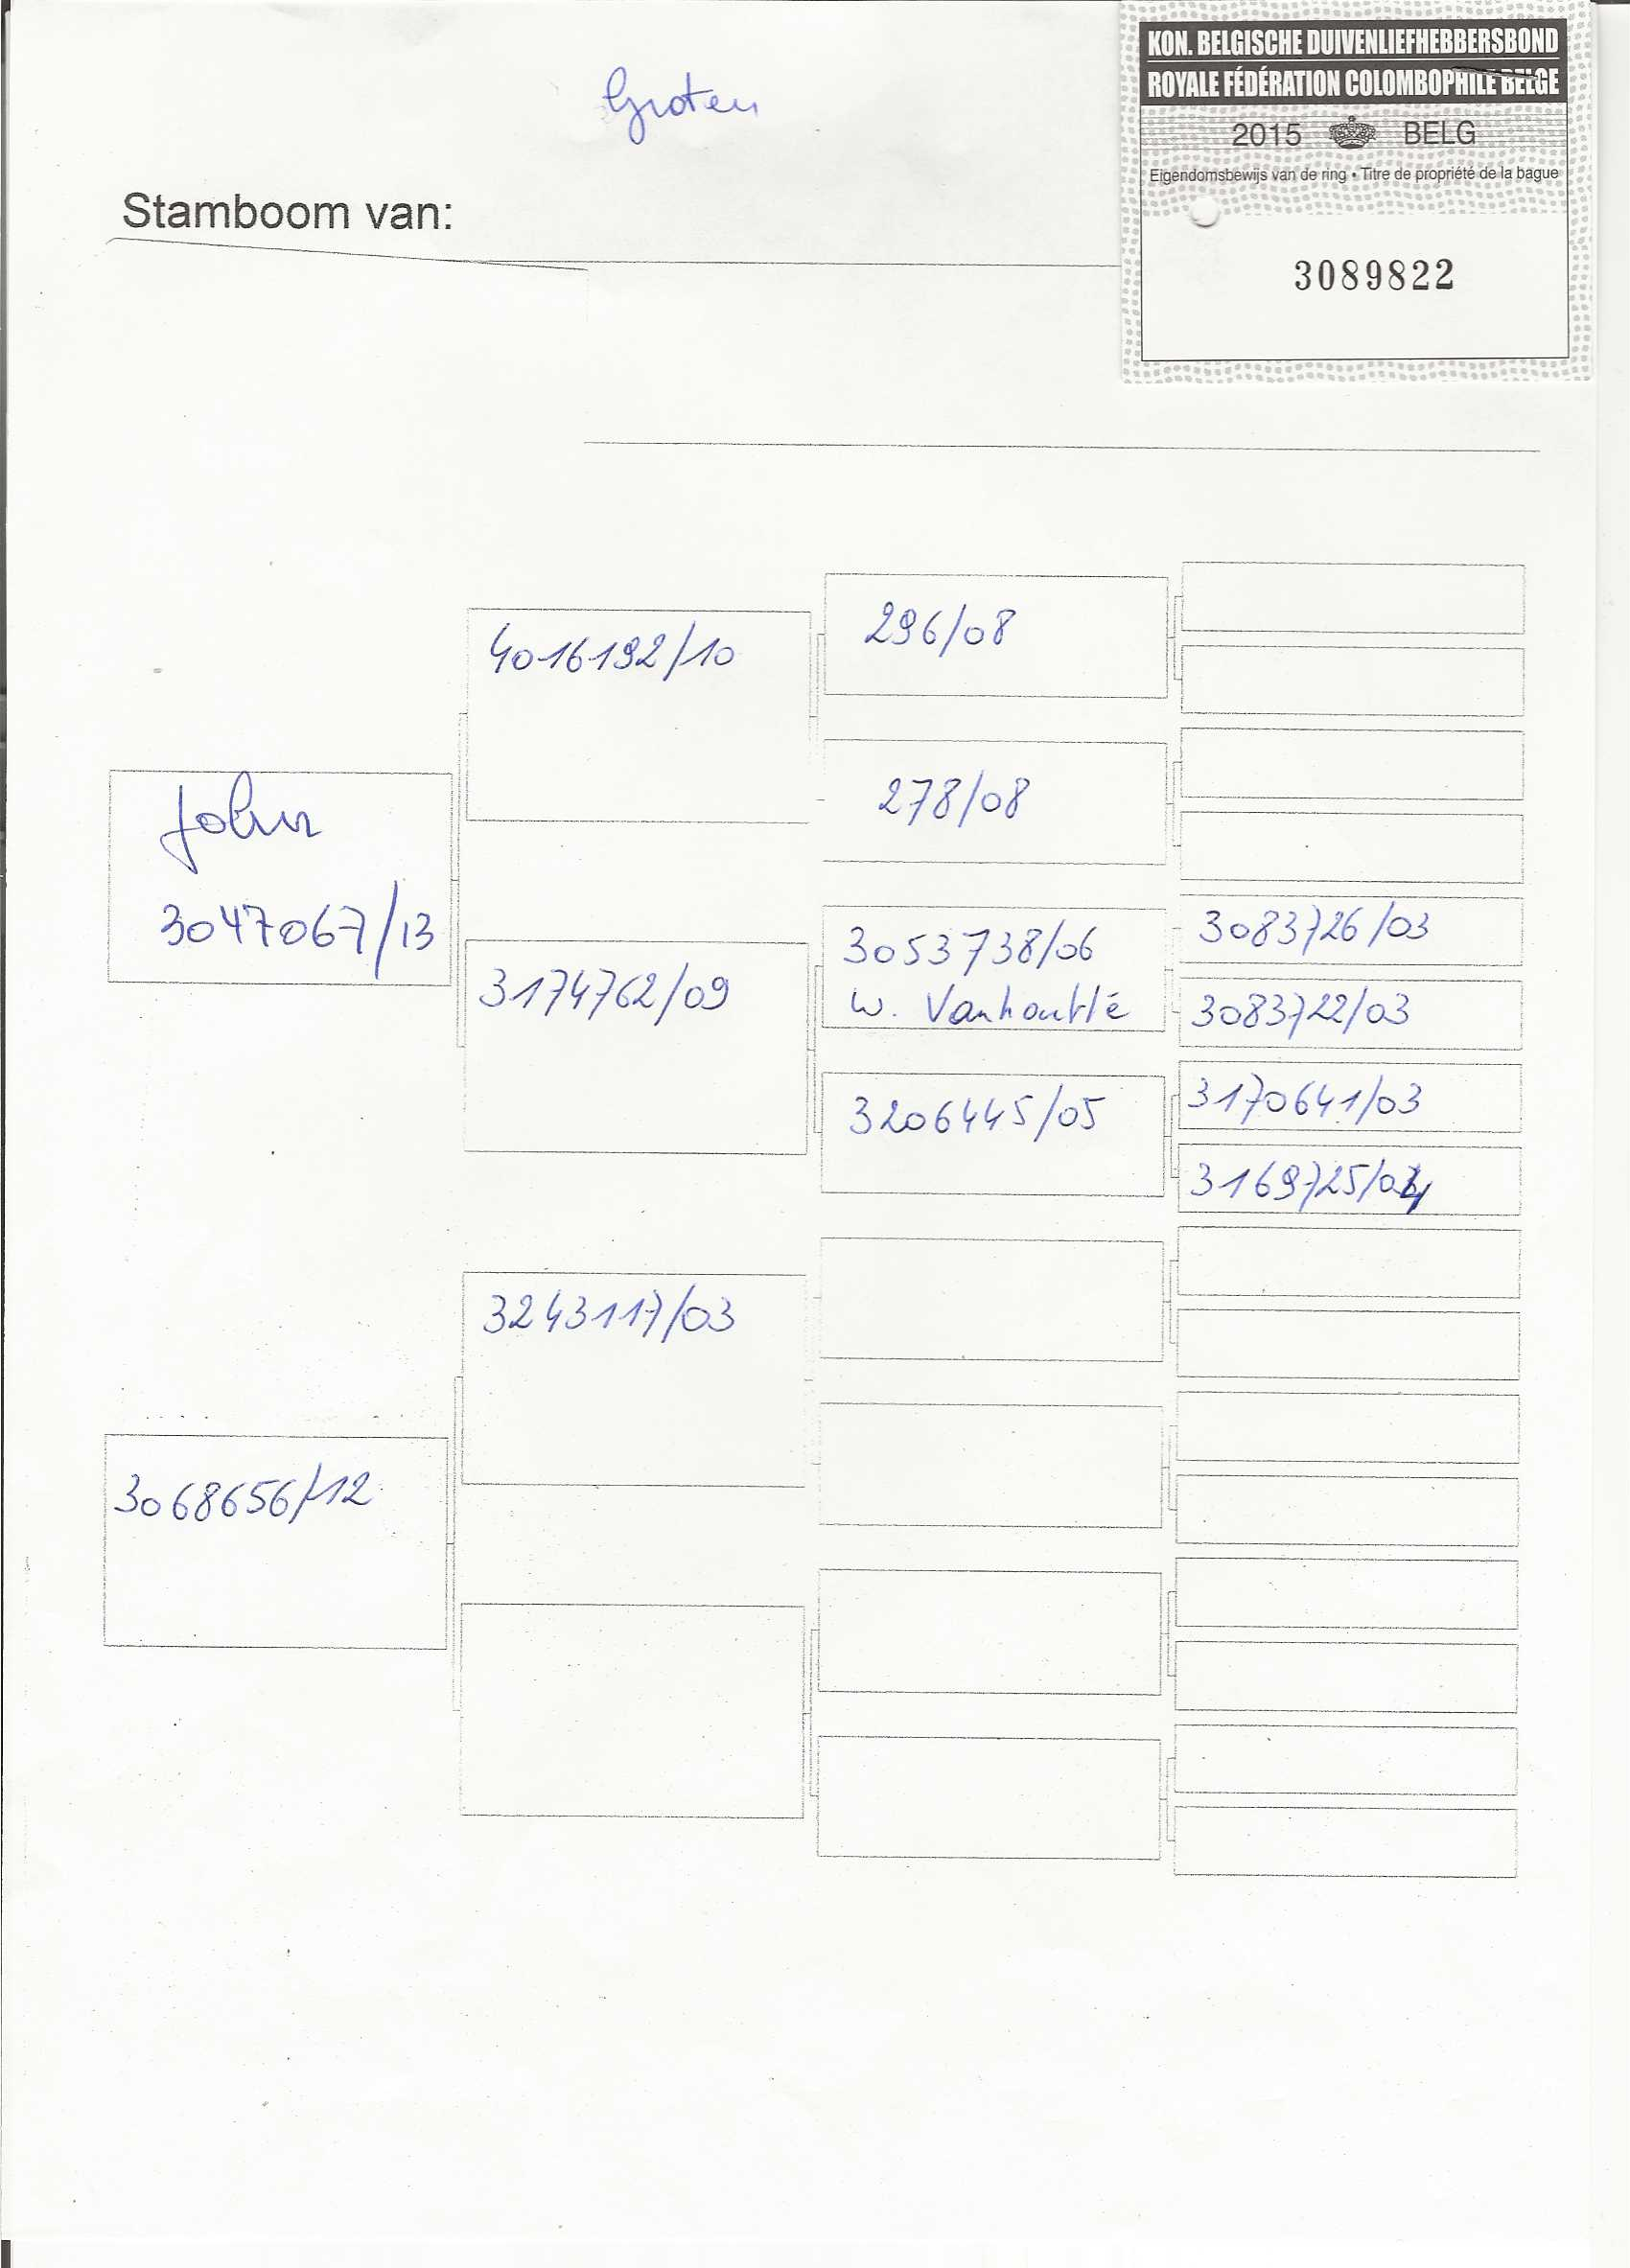 Groten
KON. BELGISCHE DUIVENLIEFHEBBERSBOND
ROYALE FÉDÉRATION COLOMBOPHILE BELGE
2015 BELG
Eigendomsbewijs van de ring • Titre de propriété de la bague
3089822
Stamboom van:
John
3047067/13
4016192/10
296/08
278/08
3174762/09
3053738/06
W. Vanhoutté
3083726/03
3083722/03
3206445/05
3170641/03
3169725/04
3068656/12
3243117/03